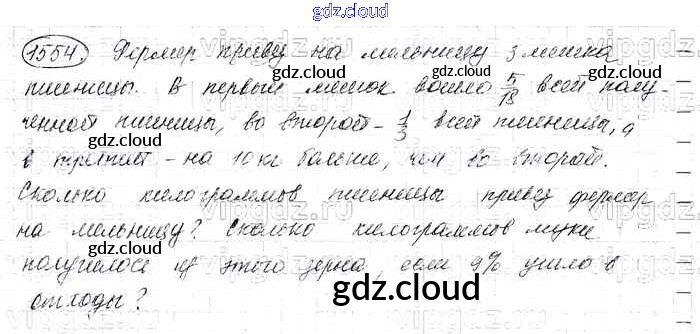 gdz.cloud
1554. Фермер привёз на мельницу 3 мешка
gdz.cloud gdz.cloud
пшеницы. В первый мешок вошло 5/18 всей полу-
ченной пшеницы, во второй - 1/3 всей пшеницы, а
в третий - на 10 кг больше, чем во второй.
gdz.cloud gdz.cloud
Сколько килограммов пшеницы привёз фермер
на мельницу? Сколько килограммов муки
gdz.cloud gdz.cloud
получилось из этого зерна, если 9% ушло в
отходы?
gdz.cloud